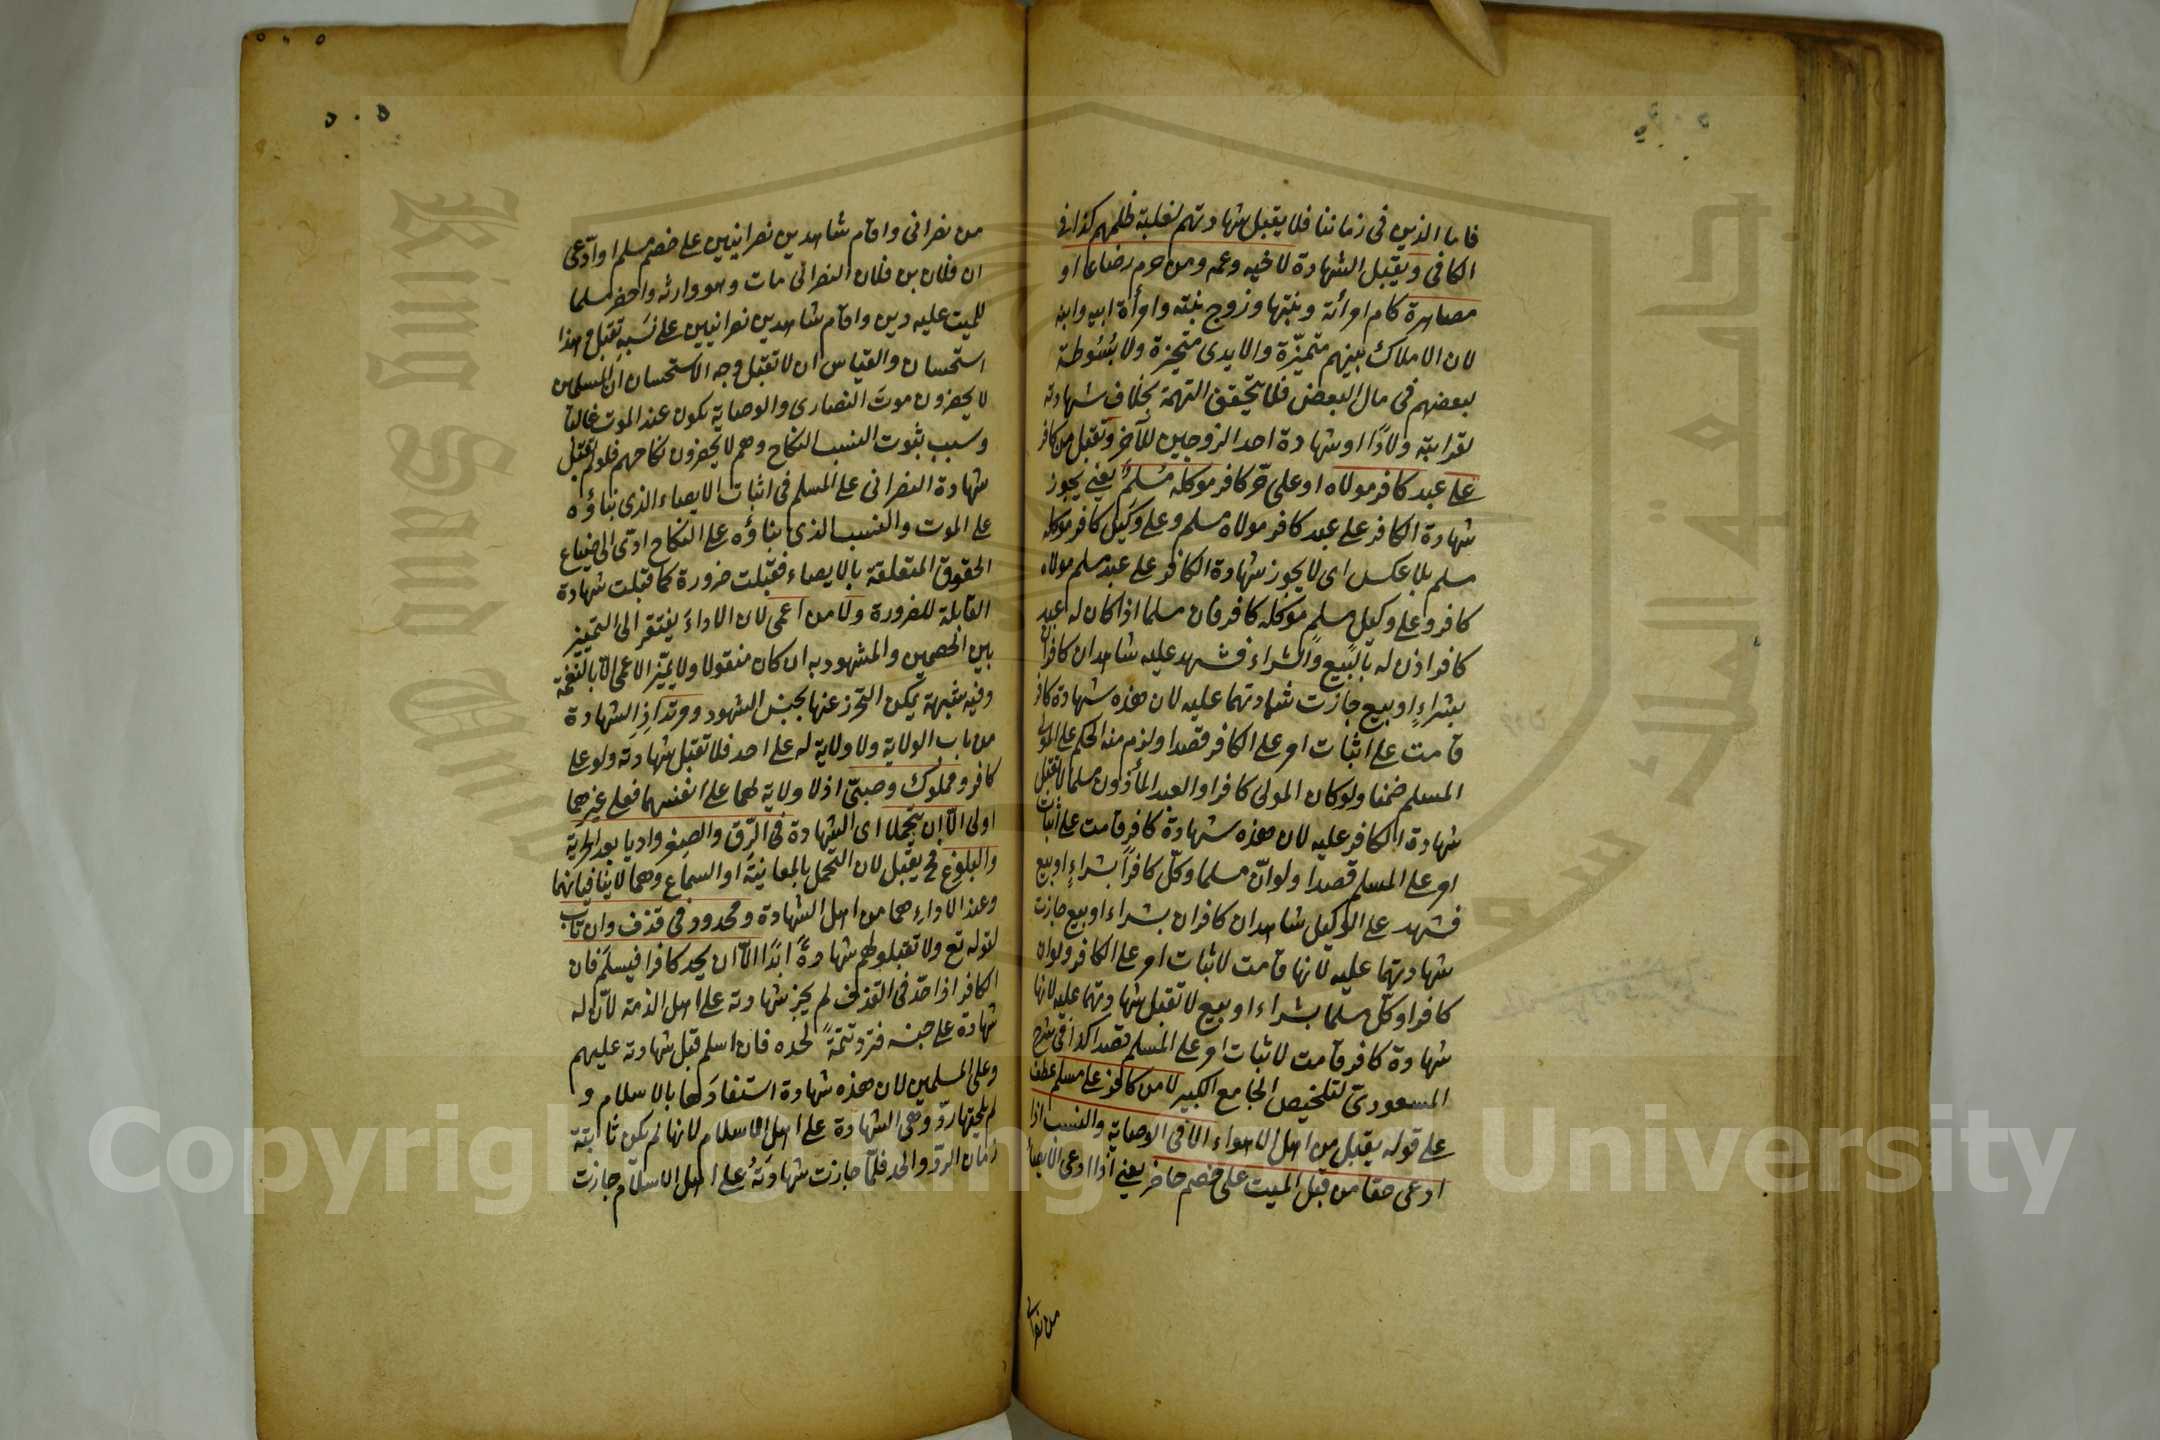 فاما الذين في زماننا فلا يقبل شهادتهم لغلبة ظلمهم كذا في
الكافي ويقبل الشهادة لاخيه وعمه ومن حرم رضاعا او
مصاهرة كام امرأته وبنتها وزوج بنته وامرأة ابيه وابنه
لان الاملاك بينهم متميّزة والايدى متحيزة ولا بُسُوطة
لبعضهم في مال البعض فلا يتحقق التهمة بخلاف شهادته
لقرابته ولادًا او شهادة احد الزوجين للآخر وتقبل من كافر
على عبد كافر مولاه او على حرّ كافر موكله مُسْلِم يعني يجوز
شهادة الكافر على عبد كافر مولاه مسلم وعلى وكيل كافر موكله
مسلم بلا عكس اى لا يجوز شهادة الكافر على عبد مسلم مولاه
كافر وعلى وكيل مسلم موكله كافر فان مسلما اذا كان له عبد
كافر اذن له بالبيع والشراء فشهد عليه شاهدان كافران
بشراءٍ او بيع جازت شهادتهما عليه لان هذه شهادة كافر
قامت على اثبات امر على الكافر قصدا ولزم منه الحكم على المولى
المسلم ضمنا ولو كان المولى كافرا والعبد المأذون مسلما لا تقبل
شهادة الكافر عليه لان هذه شهادة كافر قامت على اثبات
امر على المسلم قصدا ولو انّ مسلما وكّل كافرًا بشراءٍ او بيع
فشهد على الوكيل شاهدان كافران بشراء او بيع جازت
شهادتهما عليه لانها قامت لاثبات امر على الكافر ولو ان
كافرا وكّل مسلما بشراء او بيع لا تقبل شهادتهما عليه لانها
شهادة كافر قامت لاثبات امر على المسلم قصدا كذا في شرح
المسعودىّ لتلخيص الجامع الكبير لا من كافر على مسلم عطف
على قوله يقبل من اهل الاهواء الا في الوصاية والنسب اذا
ادعى حقا من قبل الميت على خصم حاضر يعني اذا ادعى الايصاء
من نصراني
من نصراني واقام شاهدين نصرانيين على خصم مسلم او ادّعى
ان فلان بن فلان النصراني مات وهو وارثه واحضر مسلما
للميت عليه دين واقام شاهدين نصرانيين على نسَبِه تقبل وهذا
استحسان والقياس ان لا تقبل وجه الاستحسان ان المسلمين
لا يحضرون موت النصارى والوصاية تكون عند الموت غالبا
وسبب ثبوت النسب النكاح وهم لا يحضرون نكاحهم فلو لم تقبل
شهادة النصراني على المسلم في اثبات الايصاء الذى بناؤه
على الموت والنسب الذى بناؤه على النكاح ادّى الى ضياع
الحقوق المتعلقة بالايصاء فقبلت ضرورة كما قبلت شهادة
القابلة للضرورة ولا من اعمى لان الاداء يفتقر الى التمييز
بين الخصمين والمشهود به ان كان منقولا ولا يميّز الاعمى الا بالنغمة
وفيه شبهة يمكن التحرز عنها بجنس الشهود ومرتدٍ اذِ الشهادة
من باب الولاية ولا ولاية له على احد فلا تقبل شهادته ولو على
كافر ومملوك وصبىّ اذ لا ولاية لهما على انفسهما فعلى غيرهما
اولى الا ان يتحملا اى الشهادة في الرّق والصغر واديا بعد الحرية
والبلوغ فح يقبل لان التحمل بالمعاينة او السماع وهما لا ينافيانهما
وعند الاداء هما من اهل الشهادة ومحدود في قذف وان تاب
لقوله تع ولا تقبلوا لهم شهادةً ابدًا الا ان يحد كافرا فيسلم فان
الكافر اذا حدّ في القذف لم يجز شهادته على اهل الذمة لانّ له
شهادة على جنسه فترد تتمةً لحده فان اسلم قبل شهادته عليهم
وعلى المسلمين لان هذه شهادة استفادَها بالاسلام و
لم يلحقها ردّ وهي الشهادة على اهل الاسلام لانها لم تكن ثابتة
زمان الردّ والحد فلمّا جازت شهادتُه على اهل الاسلام جازت
Copyright © King Saud University
King Saud University
جامعة الملك سعود